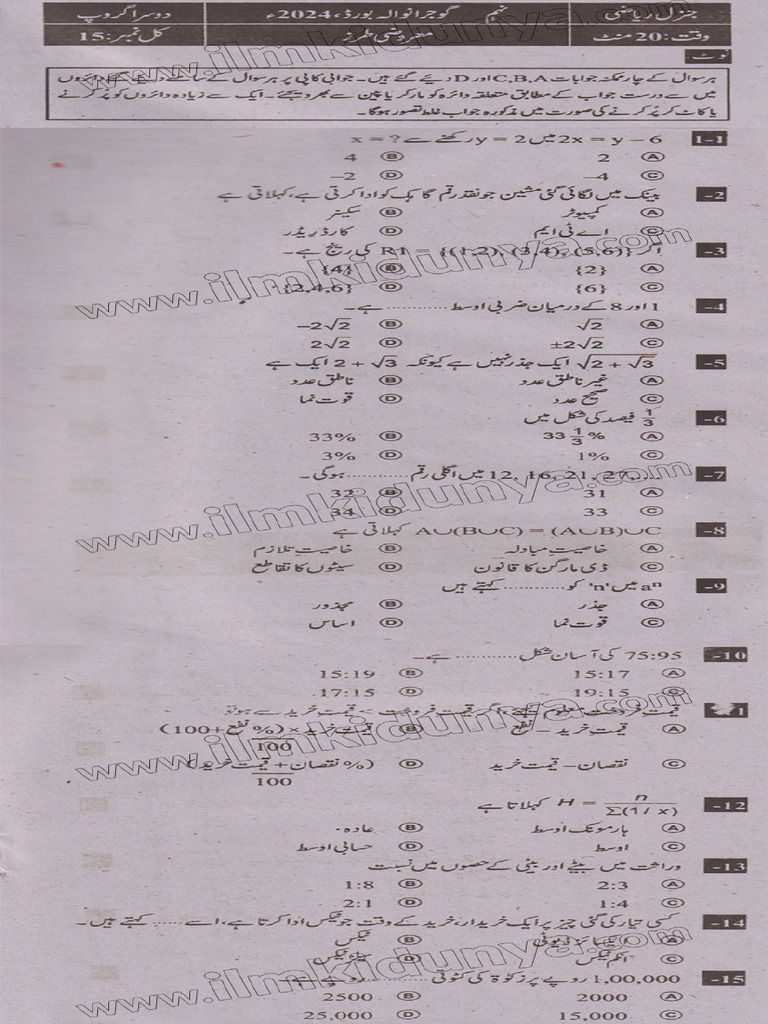 جنرل ریاضی نہم گوجرانوالہ بورڈ، 2024ء دوسرا گروپ
وقت: 20 منٹ معروضی طرز کل نمبر: 15
نوٹ:
ہر سوال کے چار ممکنہ جوابات C,B,A اور D دیئے گئے ہیں۔ جوابی کاپی پر ہر سوال کے سامنے دیئے گئے دائروں
میں سے درست جواب کے مطابق متعلقہ دائرہ کو مارکر یا پین سے بھر دیجئے۔ ایک سے زیادہ دائروں کو پُر کرنے
یا کاٹ کر پُر کرنے کی صورت میں مذکورہ جواب غلط تصور ہوگا۔
1-1 2x = y – 6 میں y = 2 رکھنے سے x = ?
A 2 B 4
C –4 D –2
2- بینک میں لگائی گئی مشین جو نقد رقم گاہک کو ادا کرتی ہے، کہلاتی ہے
A کمپیوٹر B سکینر
C اے ٹی ایم D کارڈ ریڈر
3- اگر R1 = {(1,2), (3,4), (5,6)} کی رینج ہے۔
A {2} B {4}
C {6} D {2,4,6}
4- 1 اور 8 کے درمیان ضربی اوسط ............ ہے۔
A √2 B –2√2
C ±2√2 D 2√2
5- √(2 + √3) ایک جذر نہیں ہے کیونکہ 2 + √3 ایک ہے
A غیر ناطق عدد B ناطق عدد
C صحیح عدد D قوت نما
6- 1/3 فیصد کی شکل میں
A 33 1/3 % B 33%
C 1% D 3%
7- 12, 16, 21, 27,... میں اگلی رقم ............ ہوگی۔
A 31 B 32
C 33 D 34
8- A∪(B∪C) = (A∪B)∪C کہلاتی ہے
A خاصیت مبادلہ B خاصیت تلازم
C ڈی مارگن کا قانون D سیٹوں کا تقاطع
9- aⁿ میں 'n' کو ............ کہتے ہیں
A جذر B مجذور
C قوت نما D اساس
10- 75:95 کی آسان شکل ............ ہے۔
A 15:17 B 15:19
C 19:15 D 17:15
قیمت فروخت معلوم کیجئے، اگر قیمت فروخت > قیمت خرید سے ہو تو
A قیمت خرید – نفع B قیمت خرید × (% نفع+100) / 100
C نقصان – قیمت خرید D (% نقصان + قیمت خرید) / 100
12- H = n / Σ(1/x) کہلاتا ہے
A ہارمونک اوسط B عادہ
C اوسط D حسابی اوسط
13- وراثت میں بیٹے اور بیٹی کے حصوں میں نسبت
A 2:3 B 1:8
C 1:4 D 2:1
14- کسی تیار کی گئی چیز پر ایک خریدار، خرید کے وقت جو ٹیکس ادا کرتا ہے، اسے ...... کہتے ہیں۔
A ایکسائز ڈیوٹی B ٹیکس
C انکم ٹیکس D سیلز ٹیکس
15- 1,00,000 روپے پر زکوٰۃ کی کٹوتی
A 2000 B 2500
C 15,000 D 25,000
www.ilmkidunya.com
www.ilmkidunya.com
www.ilmkidunya.com
www.ilmkidunya.com
www.ilmkidunya.com